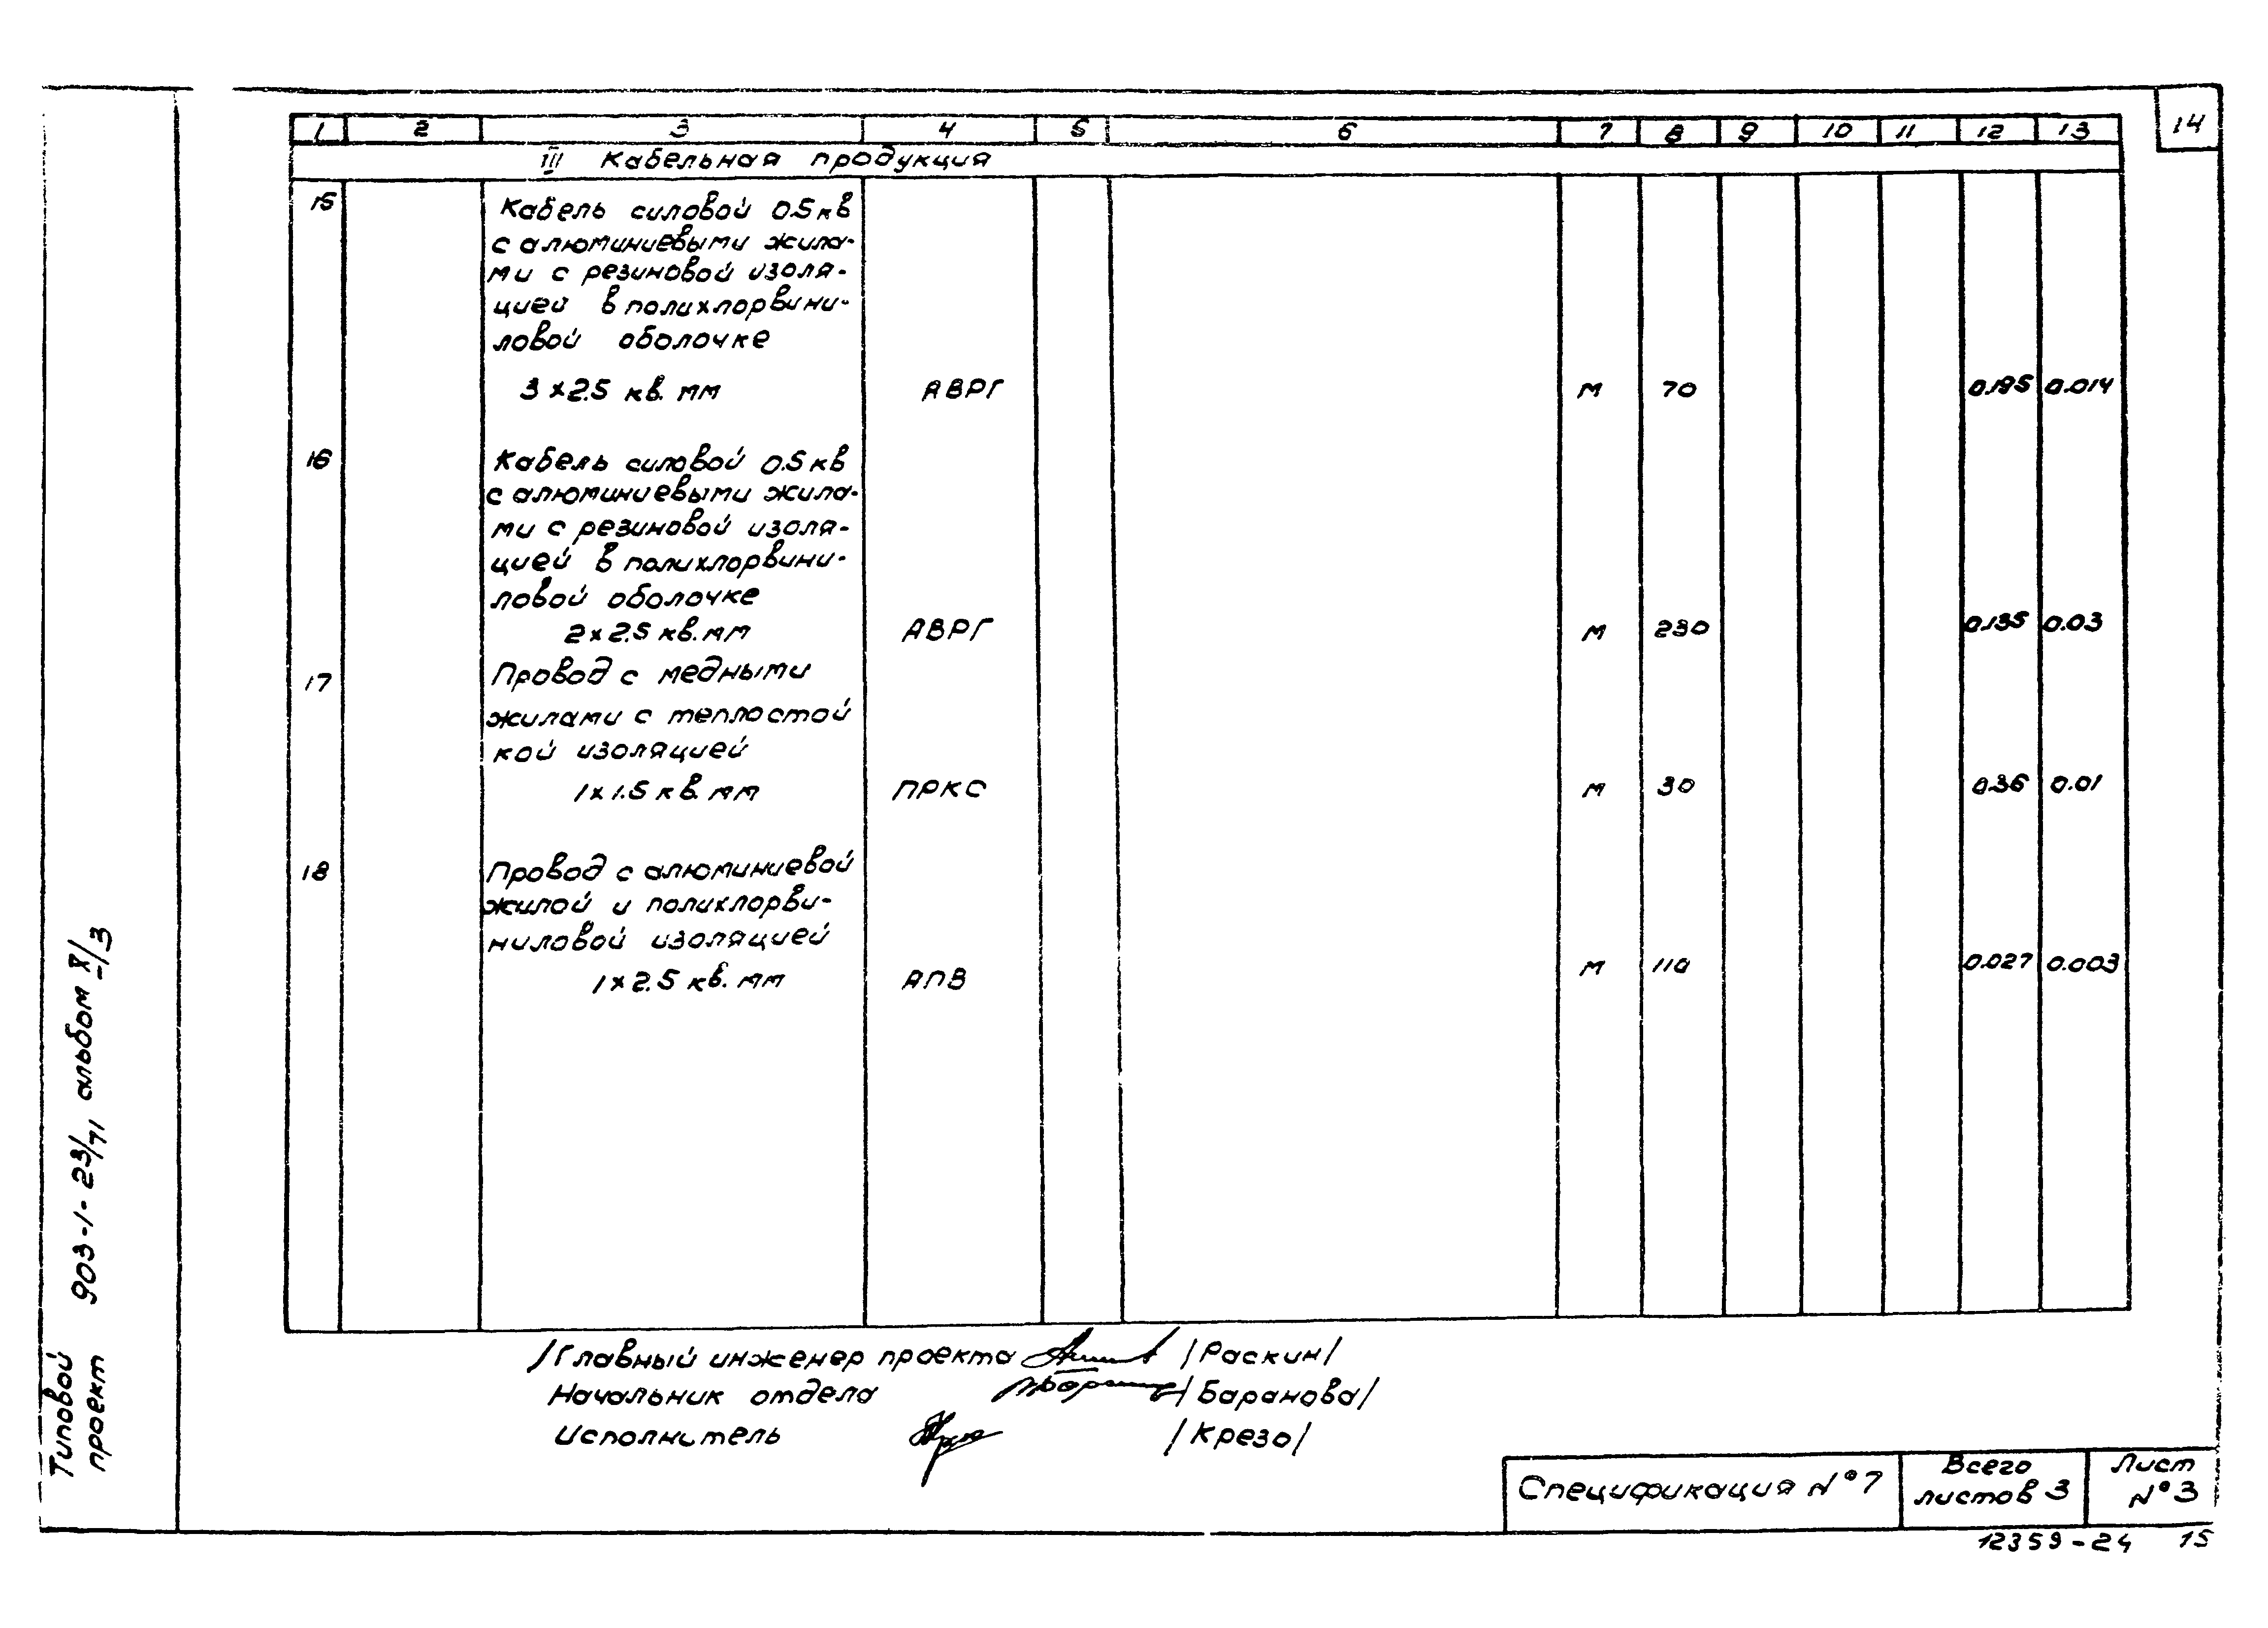 14
1 2 3 4 5 6 7 8 9 10 11 12 13
III Кабельная продукция
15 Кабель силовой 0.5 кв
с алюминиевыми жила-
ми с резиновой изоля-
цией в полихлорвини-
ловой оболочке
3 x 2.5 кв. мм АВРГ м 70 0.195 0.014
16 Кабель силовой 0.5 кв
с алюминиевыми жила-
ми с резиновой изоля-
цией в полихлорвини-
ловой оболочке
2 x 2.5 кв. мм АВРГ м 230 0.135 0.03
17 Провод с медными
жилами с теплостой
кой изоляцией
1 x 1.5 кв. мм ПРКС м 30 0.36 0.01
18 Провод с алюминиевой
жилой и полихлорви-
ниловой изоляцией
1 x 2.5 кв. мм АПВ м 110 0.027 0.003
/Главный инженер проекта /Раскин/
Начальник отдела /Баранова/
Исполнитель /Крезо/
Спецификация №7
Всего
листов 3
Лист
№3
12359-24 15
Типовой
проект 903-1-23/71 альбом X/3